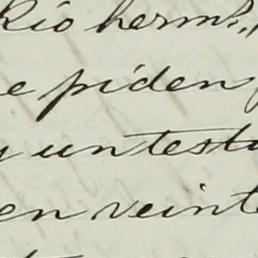 Rio herm?,
e piden
y untestu
en veinte